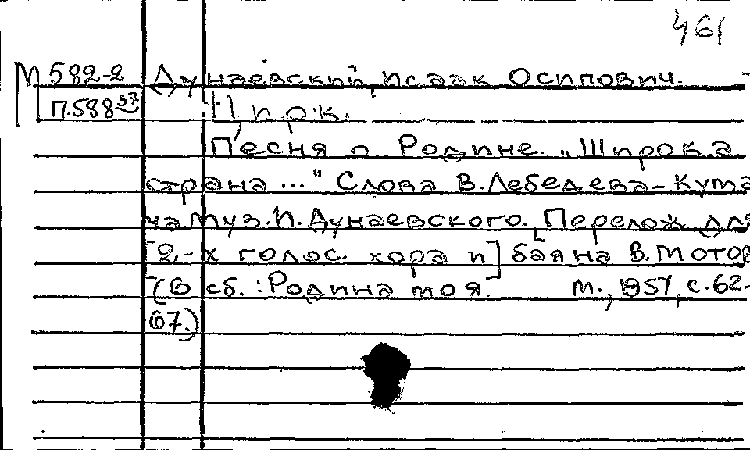 461
М 582-2 Дунаевский, Исаак Осипович.
П.588 57 Цирк.
Песня о Родине. „Широка
страна ..." Слова В.Лебедева-Кума
ча Муз. И. Дунаевского. Перелож для
[2-х голос. хора и] баяна В. Мотов
(В сб.: Родина моя. М., 1957, с.62-
67.)